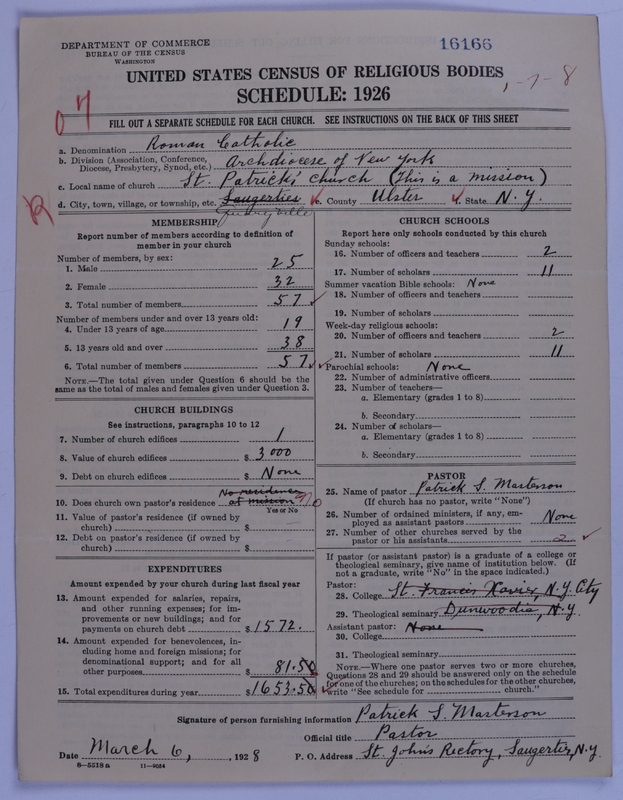 DEPARTMENT OF COMMERCE
BUREAU OF THE CENSUS
WASHINGTON
16166
UNITED STATES CENSUS OF RELIGIOUS BODIES
SCHEDULE: 1926
1-7-8
FILL OUT A SEPARATE SCHEDULE FOR EACH CHURCH. SEE INSTRUCTIONS ON THE BACK OF THIS SHEET
a. Denomination Roman Catholic
b. Division (Association, Conference, Diocese, Presbytery, Synod, etc.) Archdiocese of New York
c. Local name of church St. Patrick's church (This is a mission)
d. City, town, village, or township, etc. Saugerties e. County Ulster f. State N.Y.
MEMBERSHIP
Report number of members according to definition of
member in your church
Number of members, by sex:
1. Male 25
2. Female 32
3. Total number of members 57
Number of members under and over 13 years old:
4. Under 13 years of age 19
5. 13 years old and over 38
6. Total number of members 57
NOTE.—The total given under Question 6 should be the
same as the total of males and females given under Question 3.
CHURCH BUILDINGS
See instructions, paragraphs 10 to 12
7. Number of church edifices 1
8. Value of church edifices $ 3000
9. Debt on church edifices $ None
No residence
10. Does church own pastor's residence at mission no
Yes or No
11. Value of pastor's residence (if owned by
church) $
12. Debt on pastor's residence (if owned by
church) $
EXPENDITURES
Amount expended by your church during last fiscal year
13. Amount expended for salaries, repairs,
and other running expenses; for im-
provements or new buildings; and for
payments on church debt $ 1572.
14. Amount expended for benevolences, in-
cluding home and foreign missions; for
denominational support; and for all
other purposes $ 81.50
15. Total expenditures during year $ 1653.50
CHURCH SCHOOLS
Report here only schools conducted by this church
Sunday schools:
16. Number of officers and teachers 2
17. Number of scholars 11
Summer vacation Bible schools: None
18. Number of officers and teachers
19. Number of scholars
Week-day religious schools:
20. Number of officers and teachers 2
21. Number of scholars 11
Parochial schools: None
22. Number of administrative officers
23. Number of teachers—
a. Elementary (grades 1 to 8)
b. Secondary
24. Number of scholars—
a. Elementary (grades 1 to 8)
b. Secondary
PASTOR
25. Name of pastor Patrick S. Masterson
(If church has no pastor, write "None")
26. Number of ordained ministers, if any, em-
ployed as assistant pastors None
27. Number of other churches served by the
pastor or his assistants 2
If pastor (or assistant pastor) is a graduate of a college or
theological seminary, give name of institution below. (If
not a graduate, write "No" in the space indicated.)
Pastor:
28. College St. Francis Xavier, N.Y. City
29. Theological seminary Dunwoodia, N.Y.
Assistant pastor: None
30. College
31. Theological seminary
NOTE.—Where one pastor serves two or more churches,
Questions 28 and 29 should be answered only on the schedule
for one of the churches; on the schedules for the other churches,
write "See schedule for church."
Signature of person furnishing information Patrick S. Masterson
Official title Pastor
Date March 6, 1928 P. O. Address St. John's Rectory, Saugerties, N.Y.
8-5518 a 11-9054